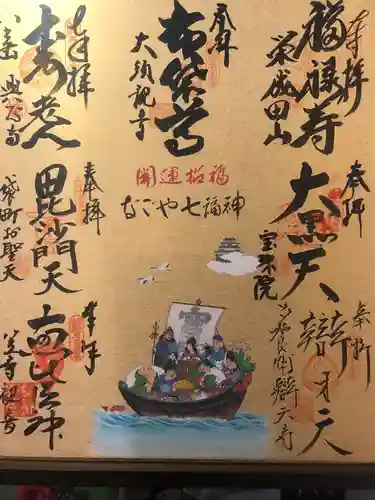 奉拝
福禄寿
奉拝
布袋尊
大須観音
奉拝
寿老人
八事山
興正寺
開運招福
なごや七福神
奉拝
大黒天
宝珠院
奉拝
毘沙門天
袋町お聖天
奉拝
辯才天
奉拝
恵比須神
笠寺観音
寳